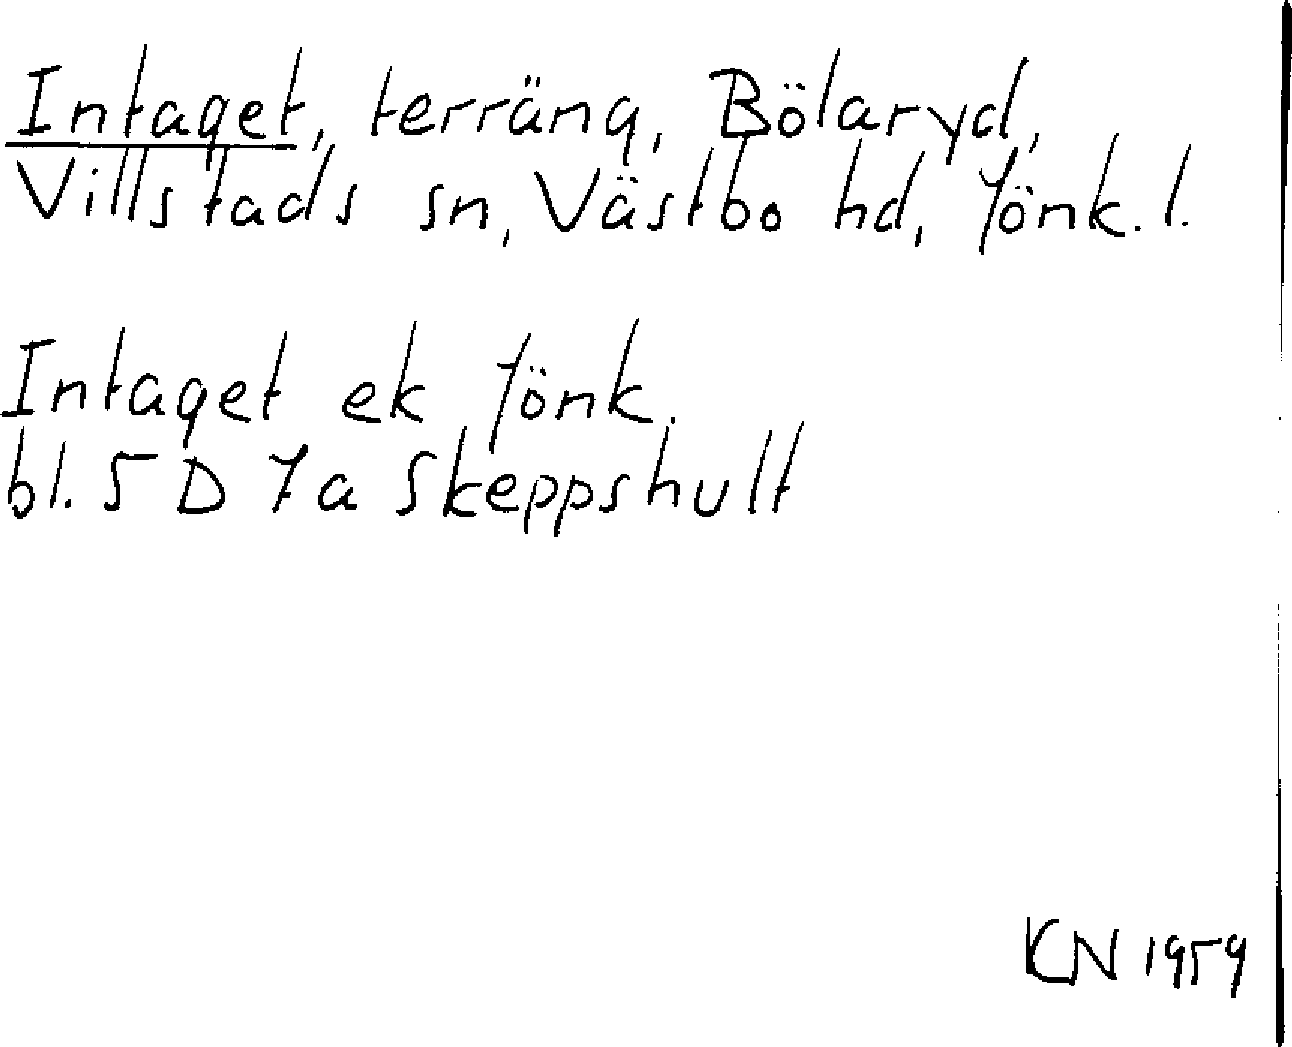 Intaget, terräng, Bölaryd,
Villstads sn, Västbo hd, Jönk. l.
Intaget ek Jönk.
bl. 5 D 7a Skeppshult
KN 1959